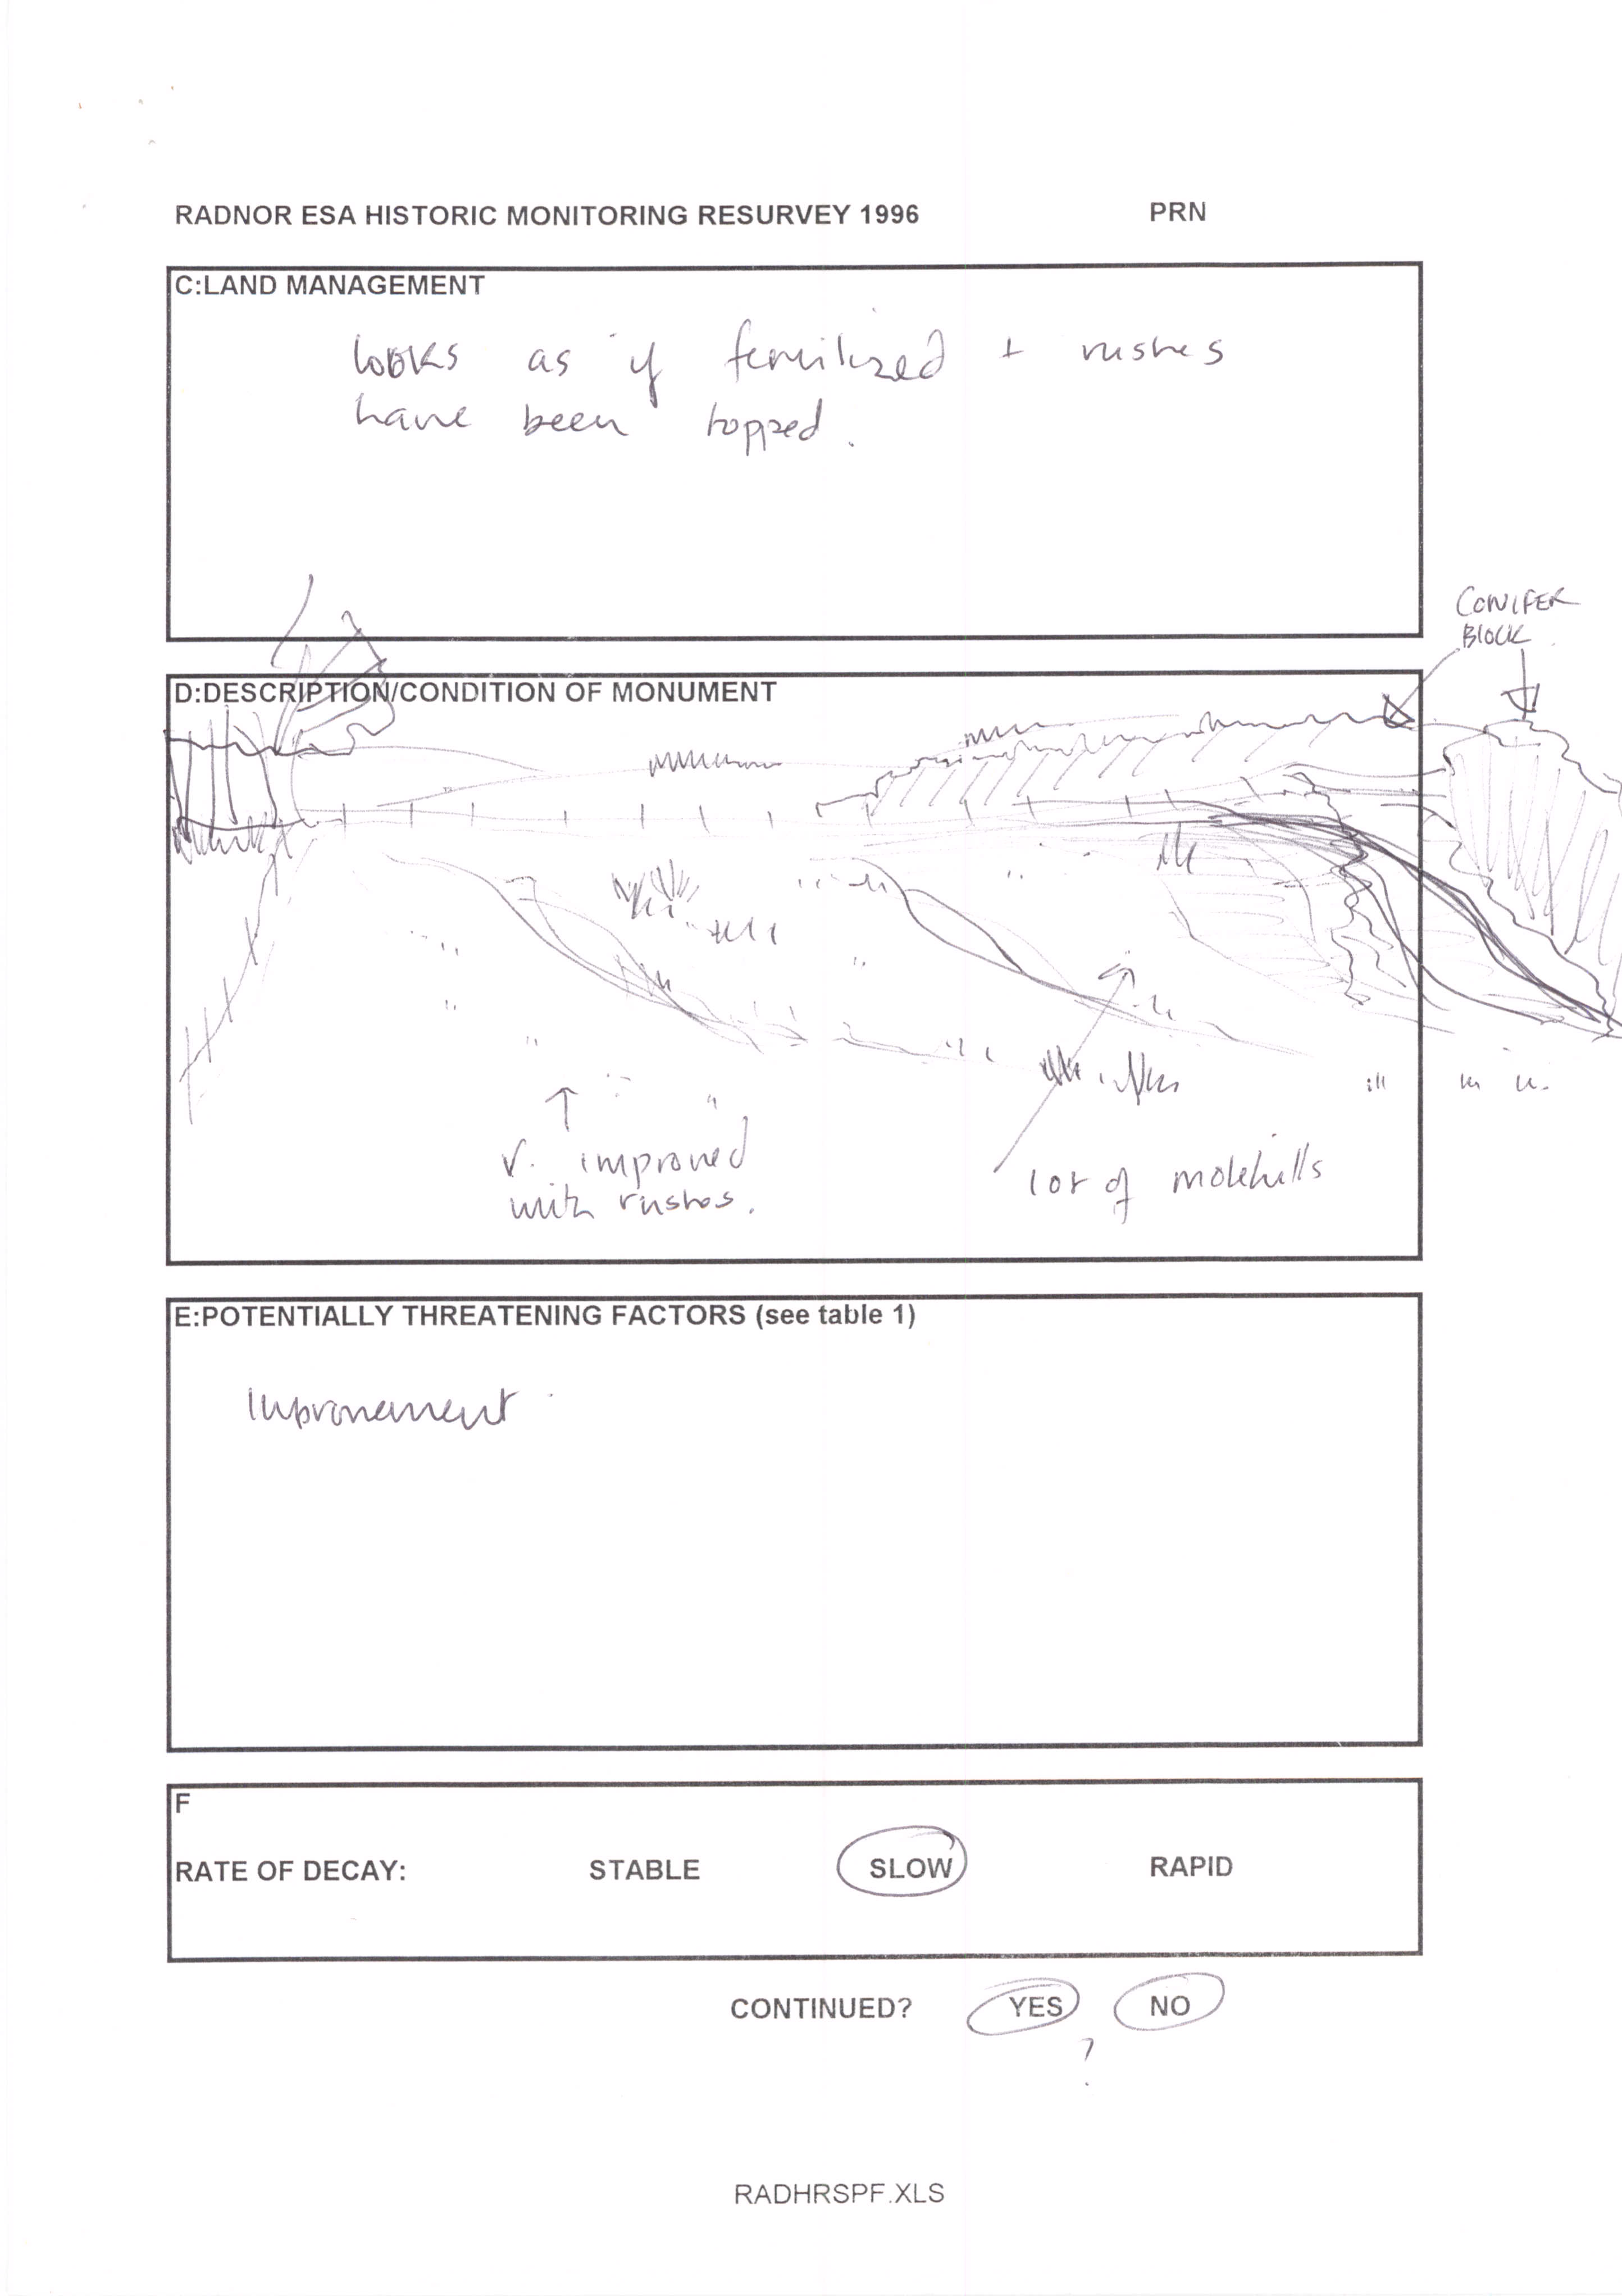 RADNOR ESA HISTORIC MONITORING RESURVEY 1996 PRN
C:LAND MANAGEMENT
looks as if fertilized + rushes
have been topped.
CONIFER
BLOCK
D:DESCRIPTION/CONDITION OF MONUMENT
V. improved
with rushes.
lot of molehills
E:POTENTIALLY THREATENING FACTORS (see table 1)
Improvement
F
RATE OF DECAY: STABLE SLOW RAPID
CONTINUED? YES NO
?
RADHRSPF.XLS